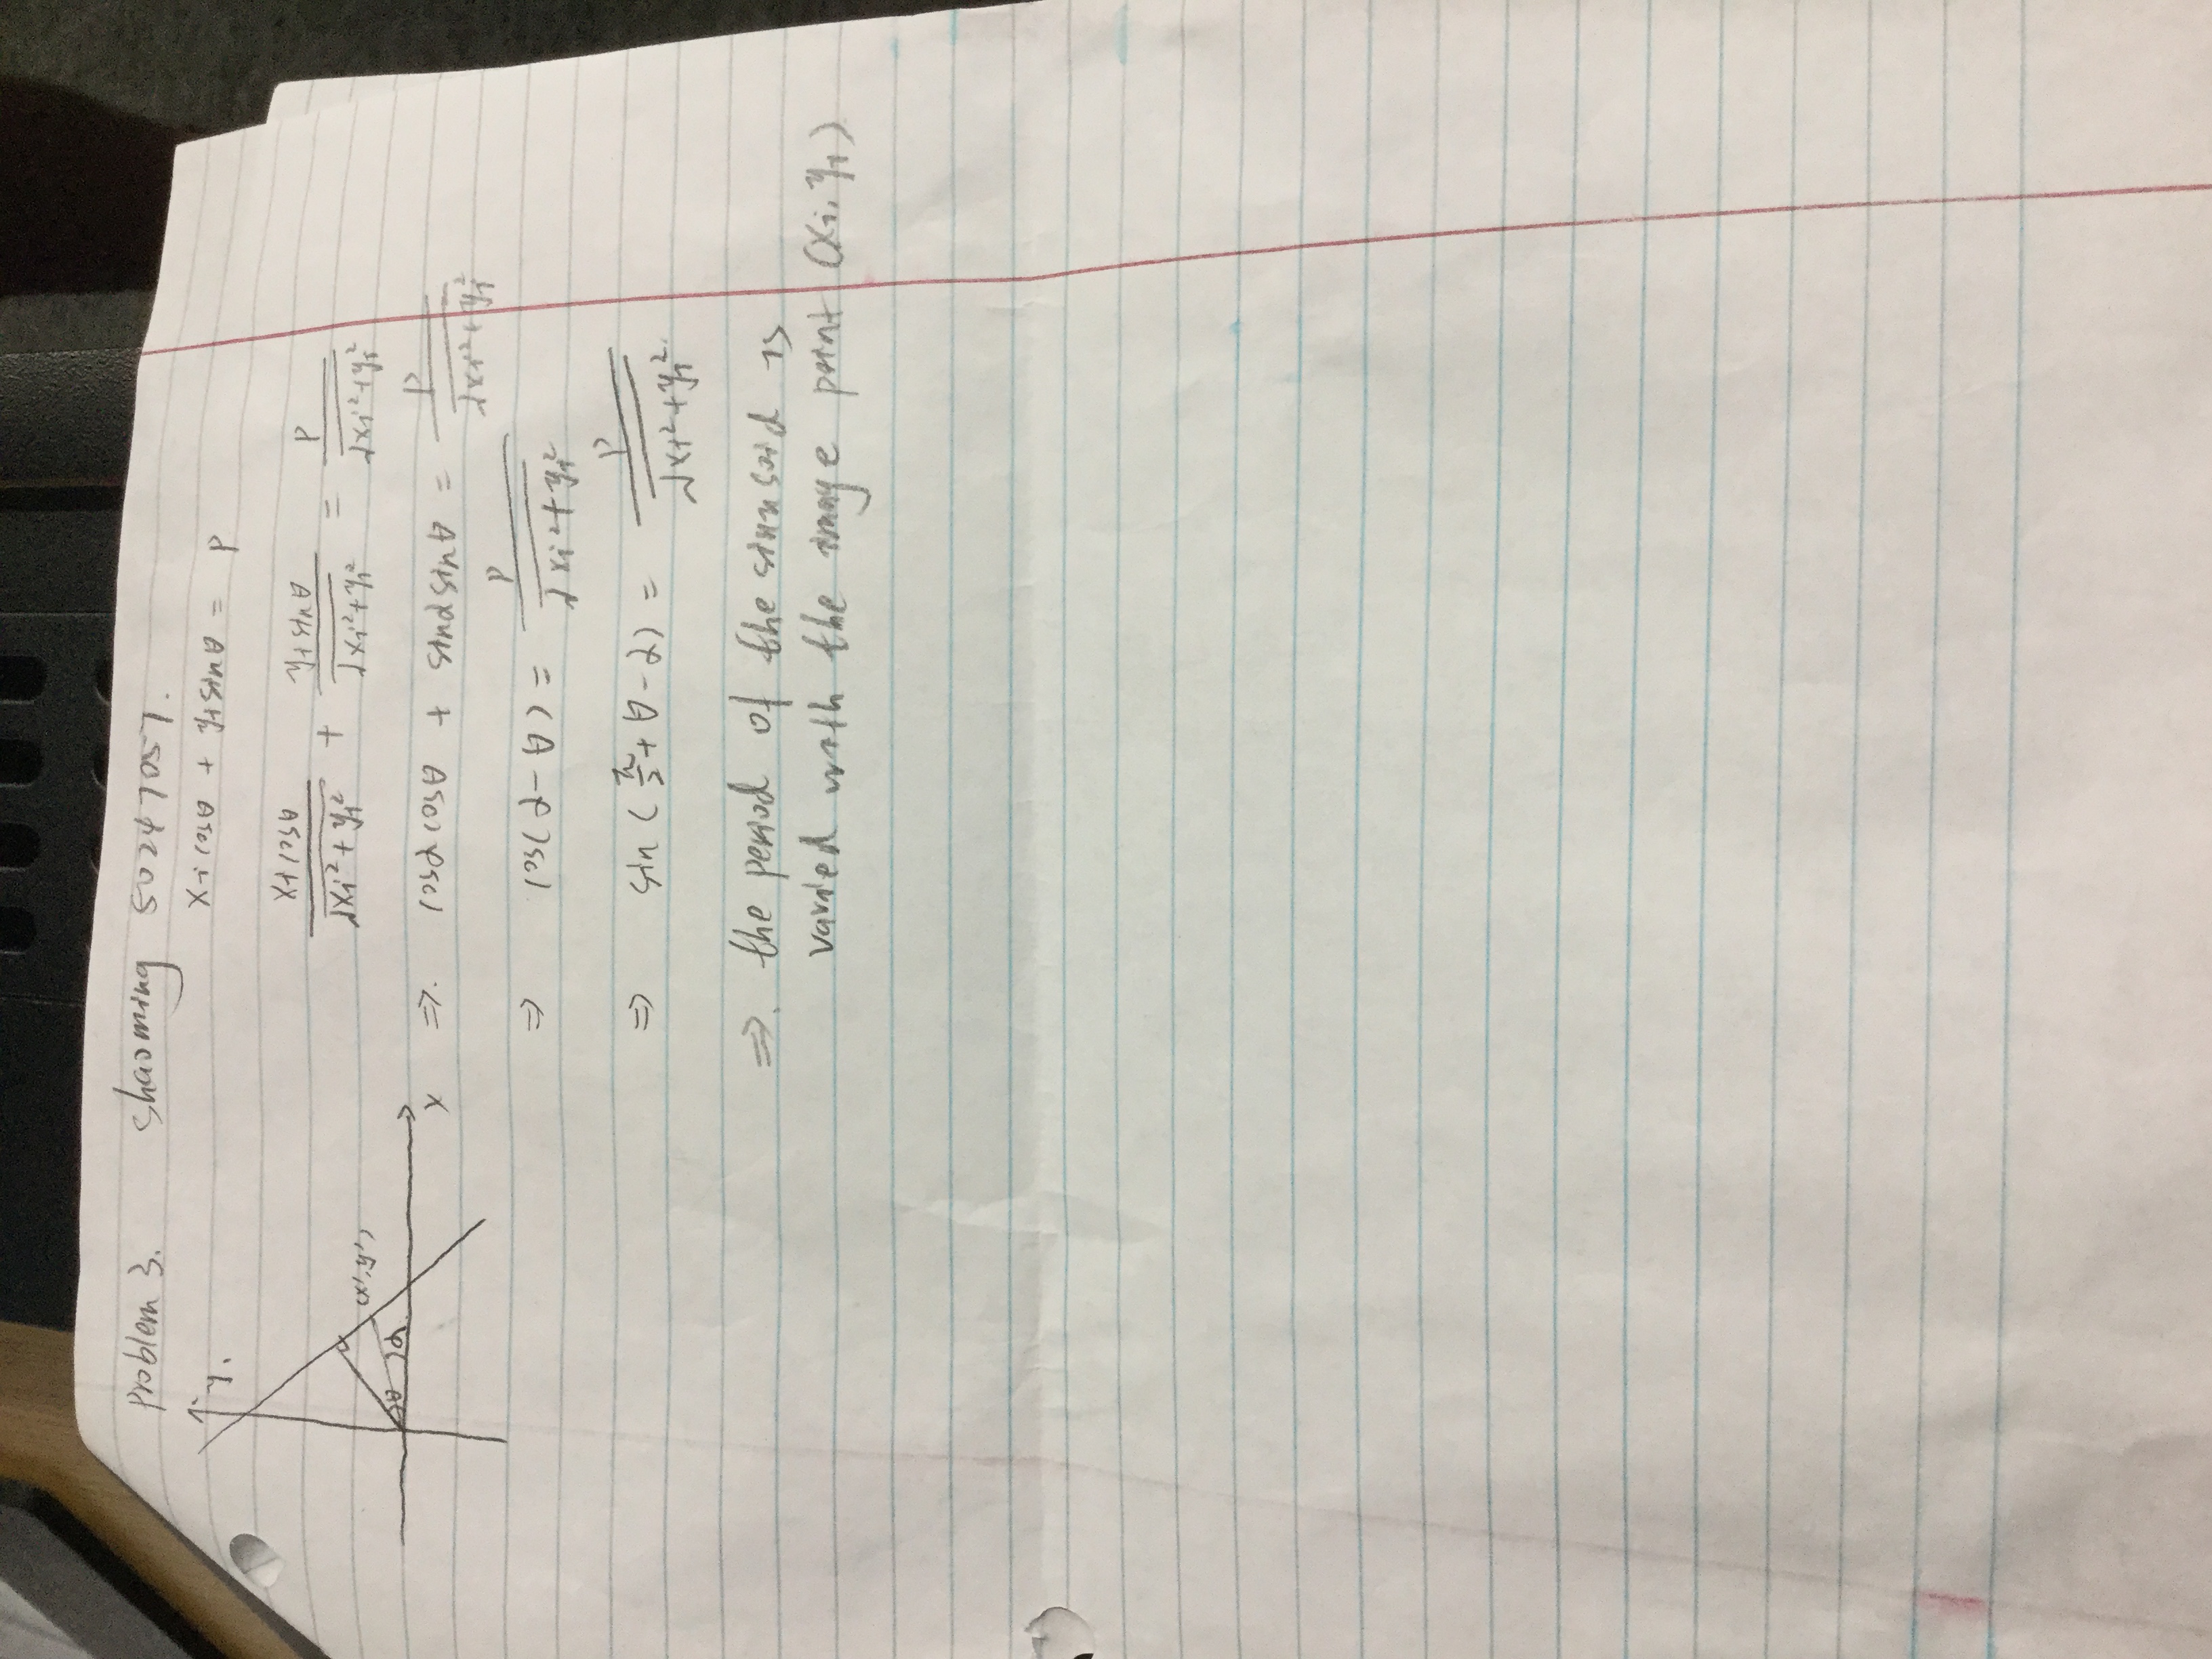 problem 3. shaoming 50247057.
y.
(x', y')
θ α
x
xi cosθ + yi sinθ = ρ
xi cosθ / √xi² + yi² + yi sinθ / √xi² + yi² = ρ / √xi² + yi²
⇒. cosα cosθ + sinα sinθ = ρ / √xi² + yi²
⇒ cos(α - θ) = ρ / √xi² + yi²
⇒ sin(π/2 + θ - α) = ρ / √xi² + yi².
⇒. the period of the sinusoid is
varied with the image point (xi, yi)